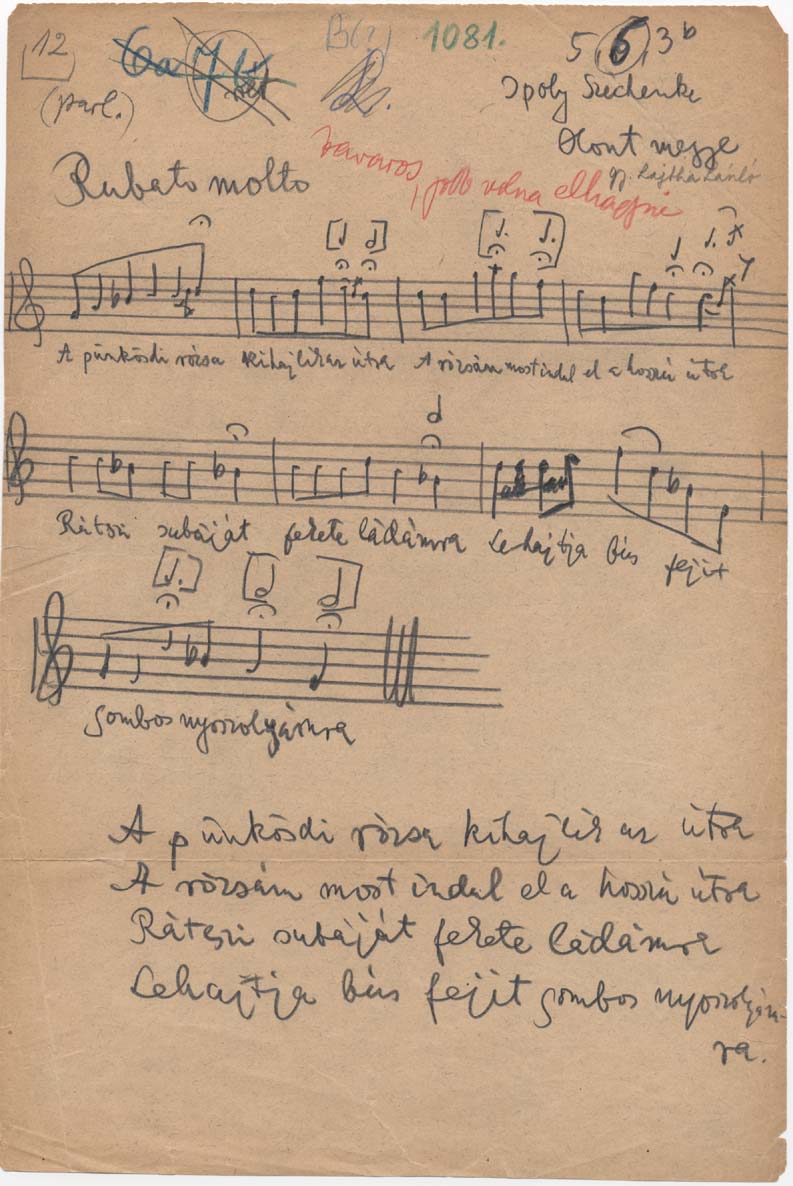 12 B(?) 1081. 5 6 3b
(parl.) Ipoly Szécsénke
Hont megye
gy. Lajtha László
zavaros, jobb volna elhagyni
Rubato molto
A pünkösdi rózsa kihajlik az útra A rózsám most indul el a hosszú útra
Ráteszi subáját fekete ládámra Lehajtja bús fejit
gombos nyoszolyámra
A pünkösdi rózsa kihajlik az útra
A rózsám most indul el a hosszú útra
Ráteszi subáját fekete ládámra
Lehajtja bús fejit gombos nyoszolyám-
ra.